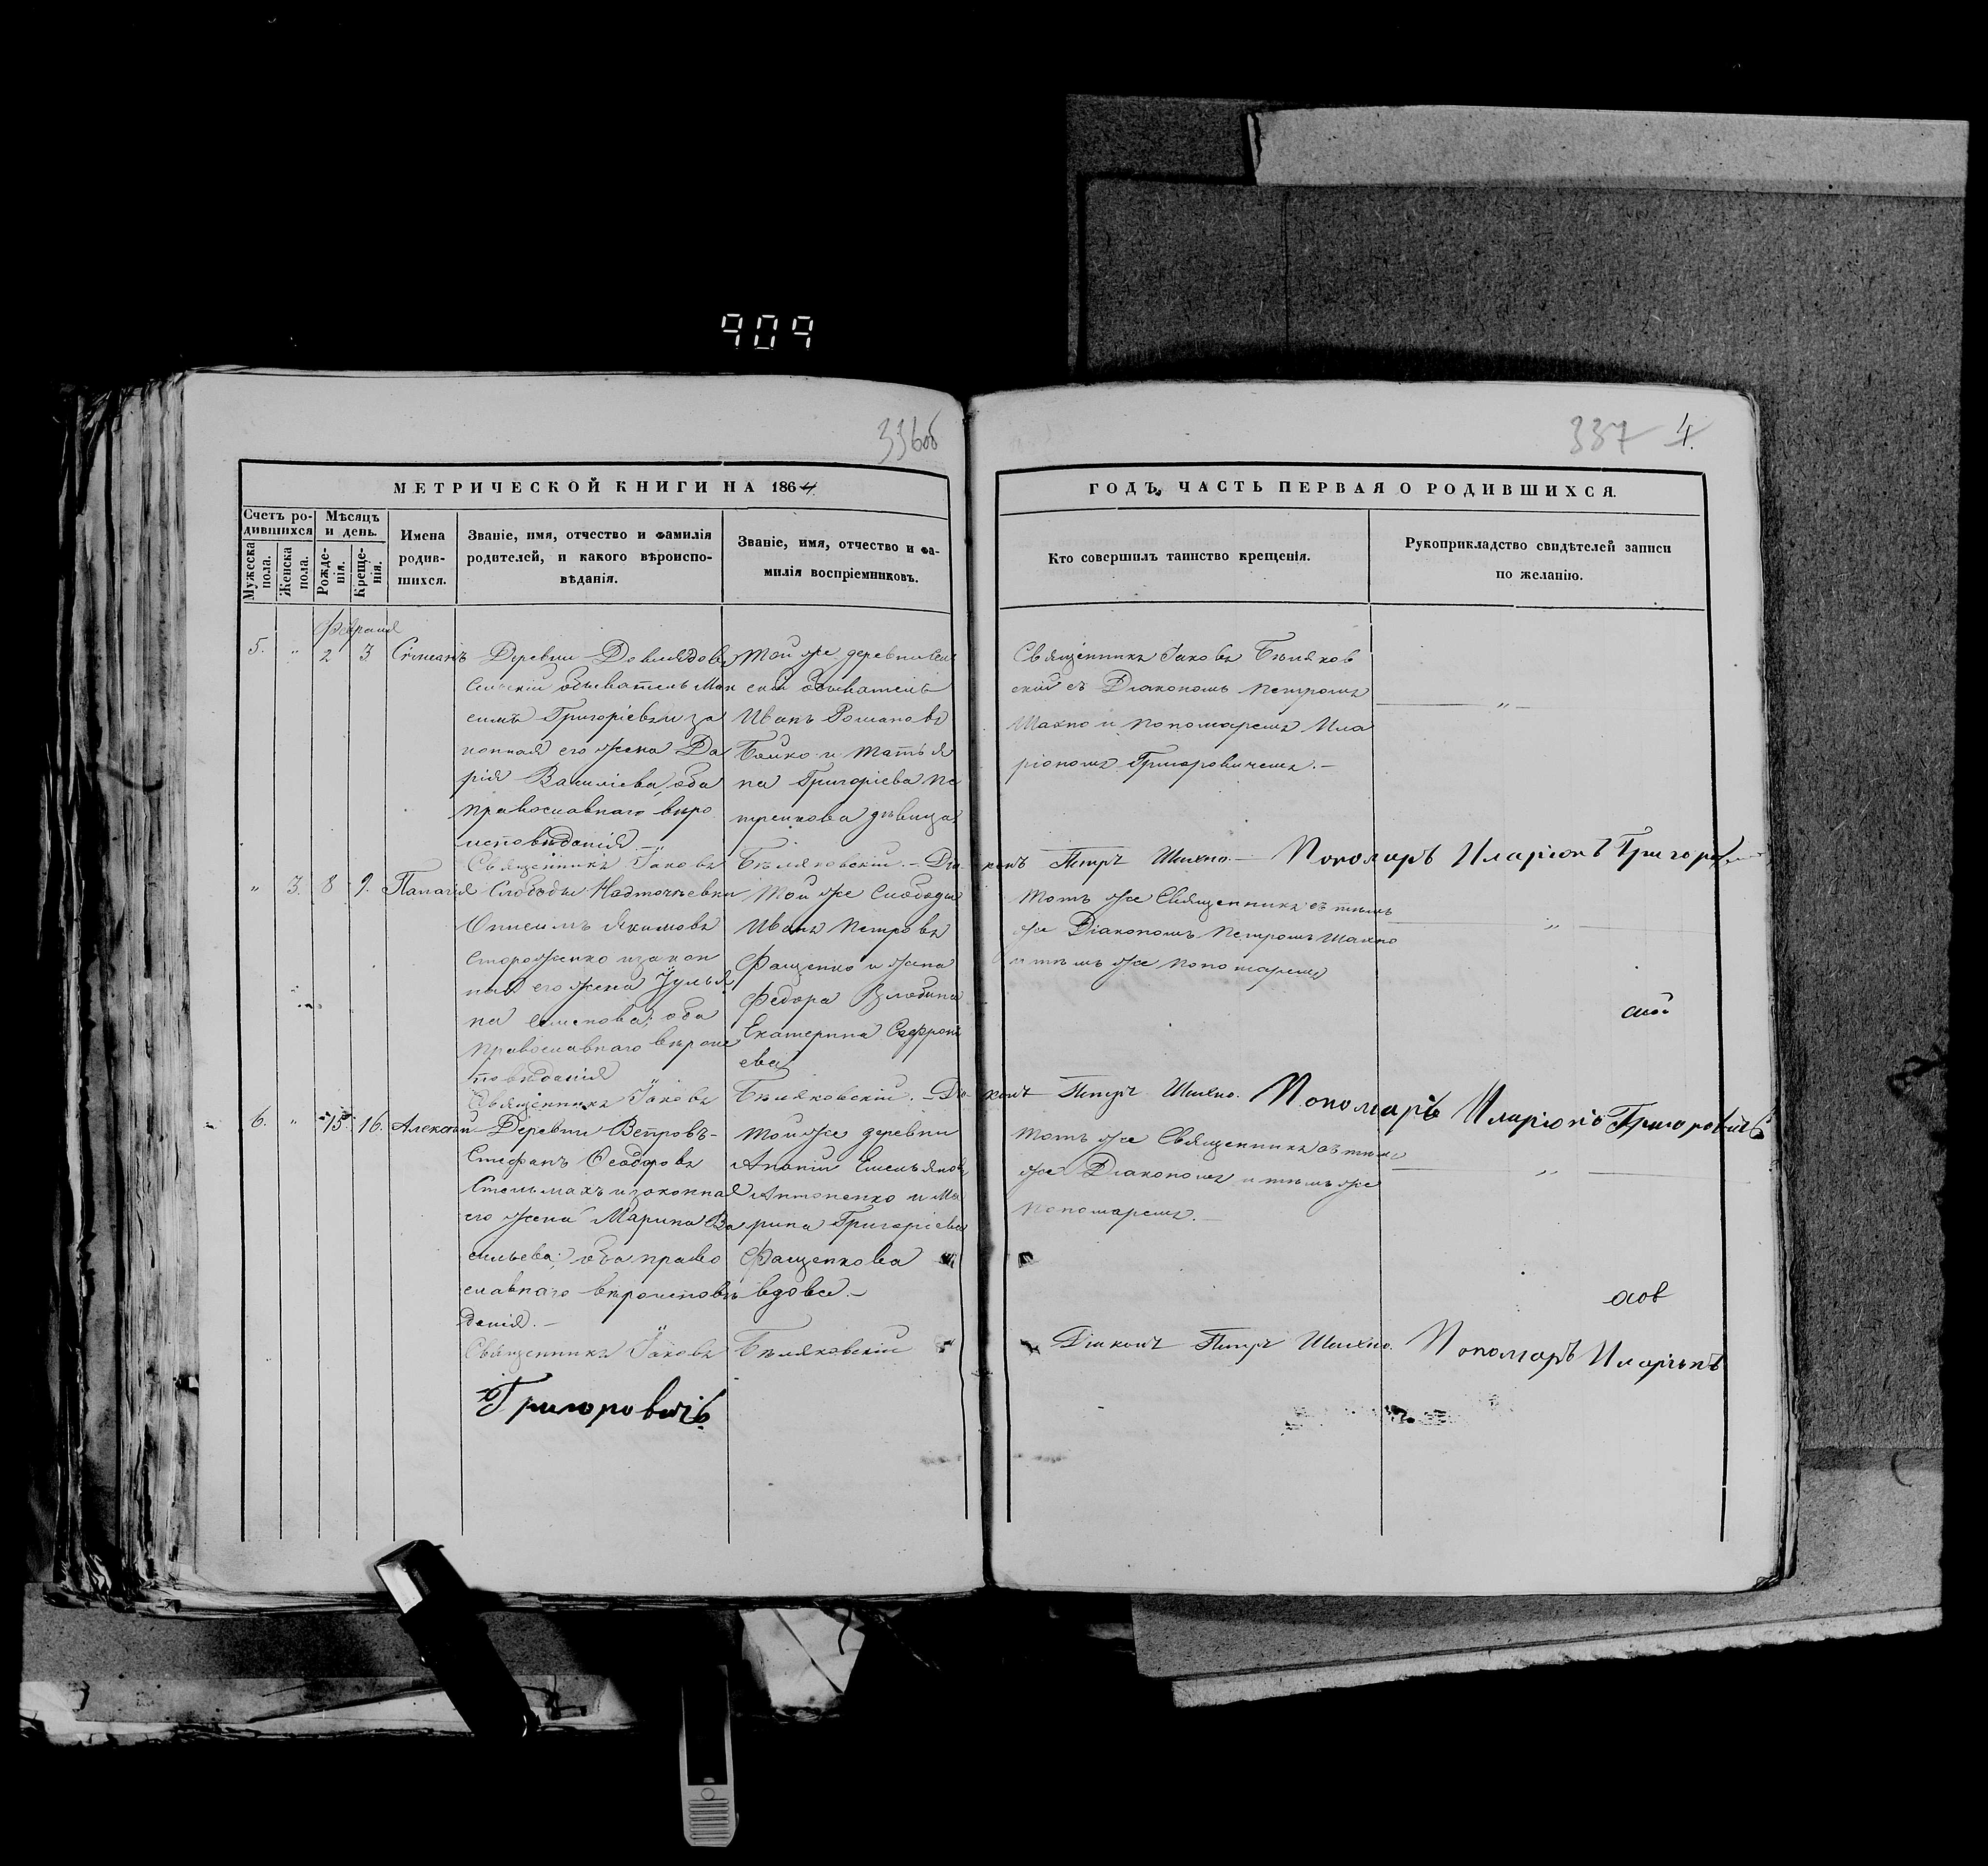 909
336об
337 4.
МЕТРИЧЕСКОЙ КНИГИ НА 1864.
ГОДЪ, ЧАСТЬ ПЕРВАЯ О РОДИВШИХСЯ.
Счетъ родившихся
Мужеска пола.
Женска пола.
Мѣсяцъ и день.
Рожденія.
Крещенія.
Имена родив-
шихся.
Званіе, имя, отчество и фамилія
родителей, и какого вѣроиспо-
вѣданія.
Званіе, имя, отчество и фа-
милія воспріемниковъ.
Кто совершилъ таинство крещенія.
Рукоприкладство свидѣтелей записи
по желанію.
Февраля
5. " 2 3
Деревни
скій обыватель Мак
симъ Григорьевъ и за
конная его жена Да
рія Василіева, оба
православнаго вѣро
исповѣданія
Той же деревни
скій обыватель
Иванъ Романовъ
Бойко и Татья
на Григоріева Пе
тренкова дѣвица
Священникъ Іаковъ Бѣляков
скій съ Діакономъ Петромъ
Шахно и пономаремъ Ила
ріономъ Григоровичемъ.—
Священникъ Іаковъ Бѣляковскій.— Діаконъ Петръ Шихно.— Пономарь Иларіонъ Григоровичъ
" 3. 8 9. Палагія
Слободы Надточѣевки
Онисимъ Якимовъ
Стороженко и закон
ная его жена Іулья
на Семенова; оба
православнаго вѣроис
повѣданія
Той же слободы
Иванъ Петровъ
Фащенко и жена
Федора
Екатерина Софрон
ева
Тотъ же Священникъ съ тѣмъ
же Діакономъ Петромъ Шахно
и тѣмъ же пономаремъ
Священникъ Іаковъ Бѣляковскій.— Діаконъ Петръ Шихно. Пономарь Иларіонъ Григоровичъ
6. " 15. 16. Алексѣй
Деревни Вепровъ-
Стефанъ Ѳеодоровъ
Стельмахъ и законная
его жена Марина Ва
сильева; оба право
славнаго вѣроисповѣ
данія.—
Той же деревни
Ананій Емельяновъ
Антоненко и Ма
рина Григоріева
Фащенкова
вдова.—
Тотъ же Священникъ съ тѣмъ
же Діакономъ и тѣмъ же
пономаремъ.—
Священникъ Іаковъ Бѣляковскій Діаконъ Петръ Шихно. Пономарь Иларіонъ
Григоровичъ